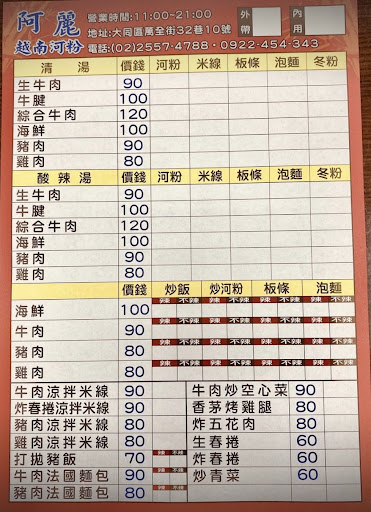 阿麗
越南河粉
營業時間:11:00~21:00
地址:大同區萬全街32巷10號
電話:(02)2557-4788 · 0922-454-343
外帶
內用
清湯 價錢 河粉 米線 板條 泡麵 冬粉
生牛肉 90
牛腱 100
綜合牛肉 120
海鮮 100
豬肉 90
雞肉 80
酸辣湯 價錢 河粉 米線 板條 泡麵 冬粉
生牛肉 90
牛腱 100
綜合牛肉 120
海鮮 100
豬肉 90
雞肉 80
價錢 炒飯 炒河粉 板條 泡麵
辣 不辣 辣 不辣 辣 不辣 辣 不辣
海鮮 100
辣 不辣 辣 不辣 辣 不辣 辣 不辣
牛肉 90
辣 不辣 辣 不辣 辣 不辣 辣 不辣
豬肉 80
辣 不辣 辣 不辣 辣 不辣 辣 不辣
雞肉 80
牛肉涼拌米線 90 牛肉炒空心菜 90
炸春捲涼拌米線 90 香茅烤雞腿 80
豬肉涼拌米線 80 炸五花肉 80
雞肉涼拌米線 80 生春捲 60
打拋豬飯 70 辣 不辣 炸春捲 60
牛肉法國麵包 90 辣 不辣 炒青菜 60
豬肉法國麵包 80 辣 不辣